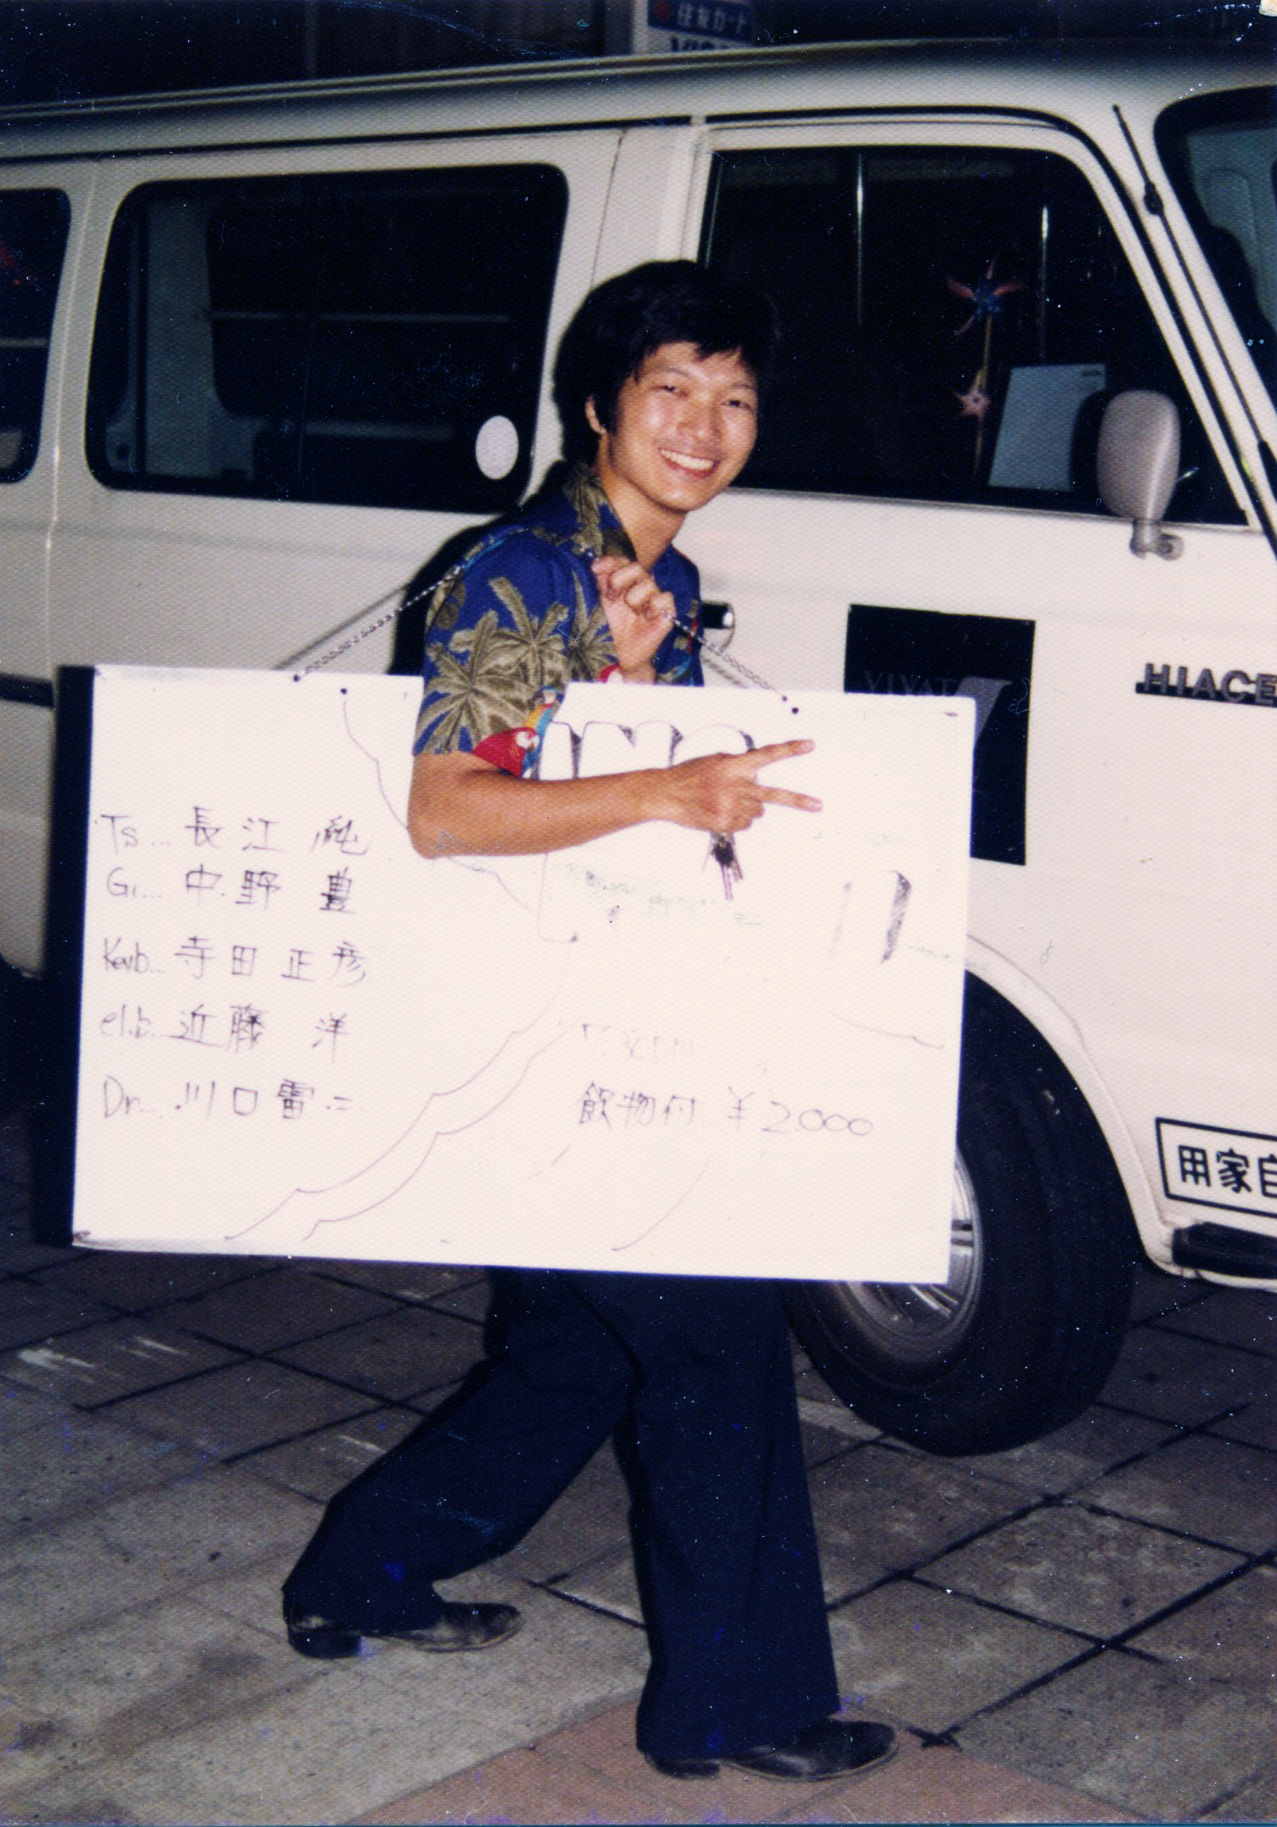 住友カード
VISA
VIVAT
HIACE
Ts... 長江 純
Gt... 中野 豊
Keyb... 寺田 正彦
el.b... 近藤 洋
Dr... 川口 雷二
飲物付 ¥2.000
用家自